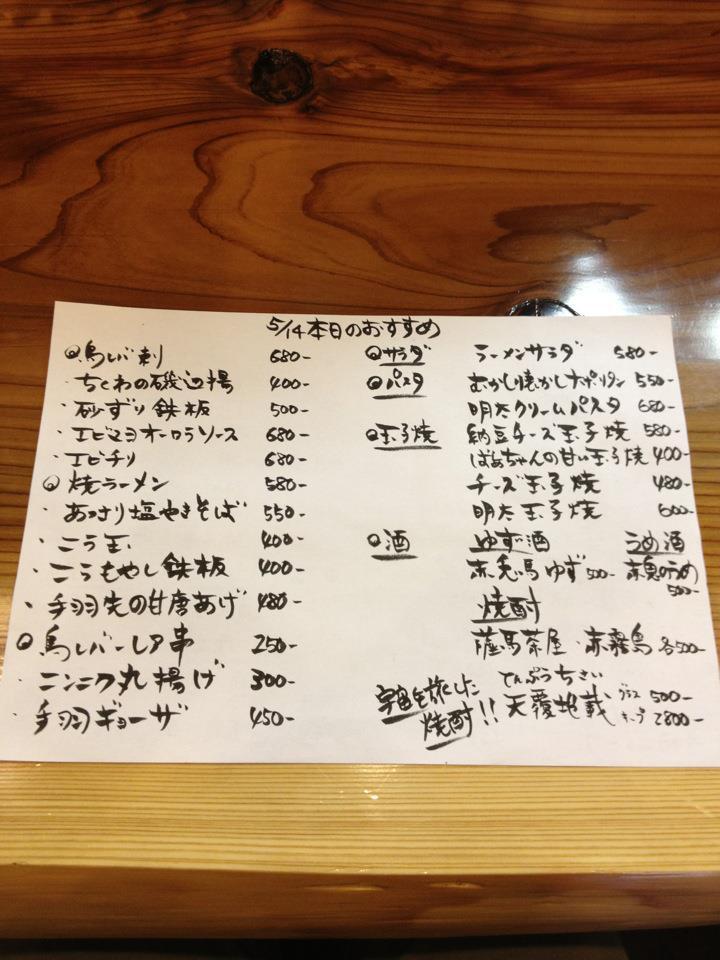 5/14本日のおすすめ
◎鳥レバ刺 680-
・ちくわの磯辺揚 400-
・砂ずり鉄板 500-
・エビマヨオーロラソース 680-
・エビチリ 680-
◎焼ラーメン 580-
・あっさり塩やきそば 550-
・こう玉 400-
・こうもやし鉄板 400-
・手羽先の甘唐あげ 480-
◎鳥レバーレア串 250-
・ニンニク丸揚げ 300-
・手羽ギョーザ 450-
◎サラダ ラーメンサラダ 580-
◎パスタ むかし懐かしナポリタン 550-
明太クリームパスタ 680-
◎玉子焼 納豆チーズ玉子焼 580-
ばあちゃんの甘い玉子焼 400-
チーズ玉子焼 480-
明太玉子焼 600-
◎酒 ゆず酒 うめ酒
赤兎馬ゆず 500- 赤兎馬うめ 500-
焼酎
薩摩茶屋・赤霧島 各500-
宇宙を旅した焼酎!!
てんぷうちさい
天覆地載 グラス 500-
キープ 2800-